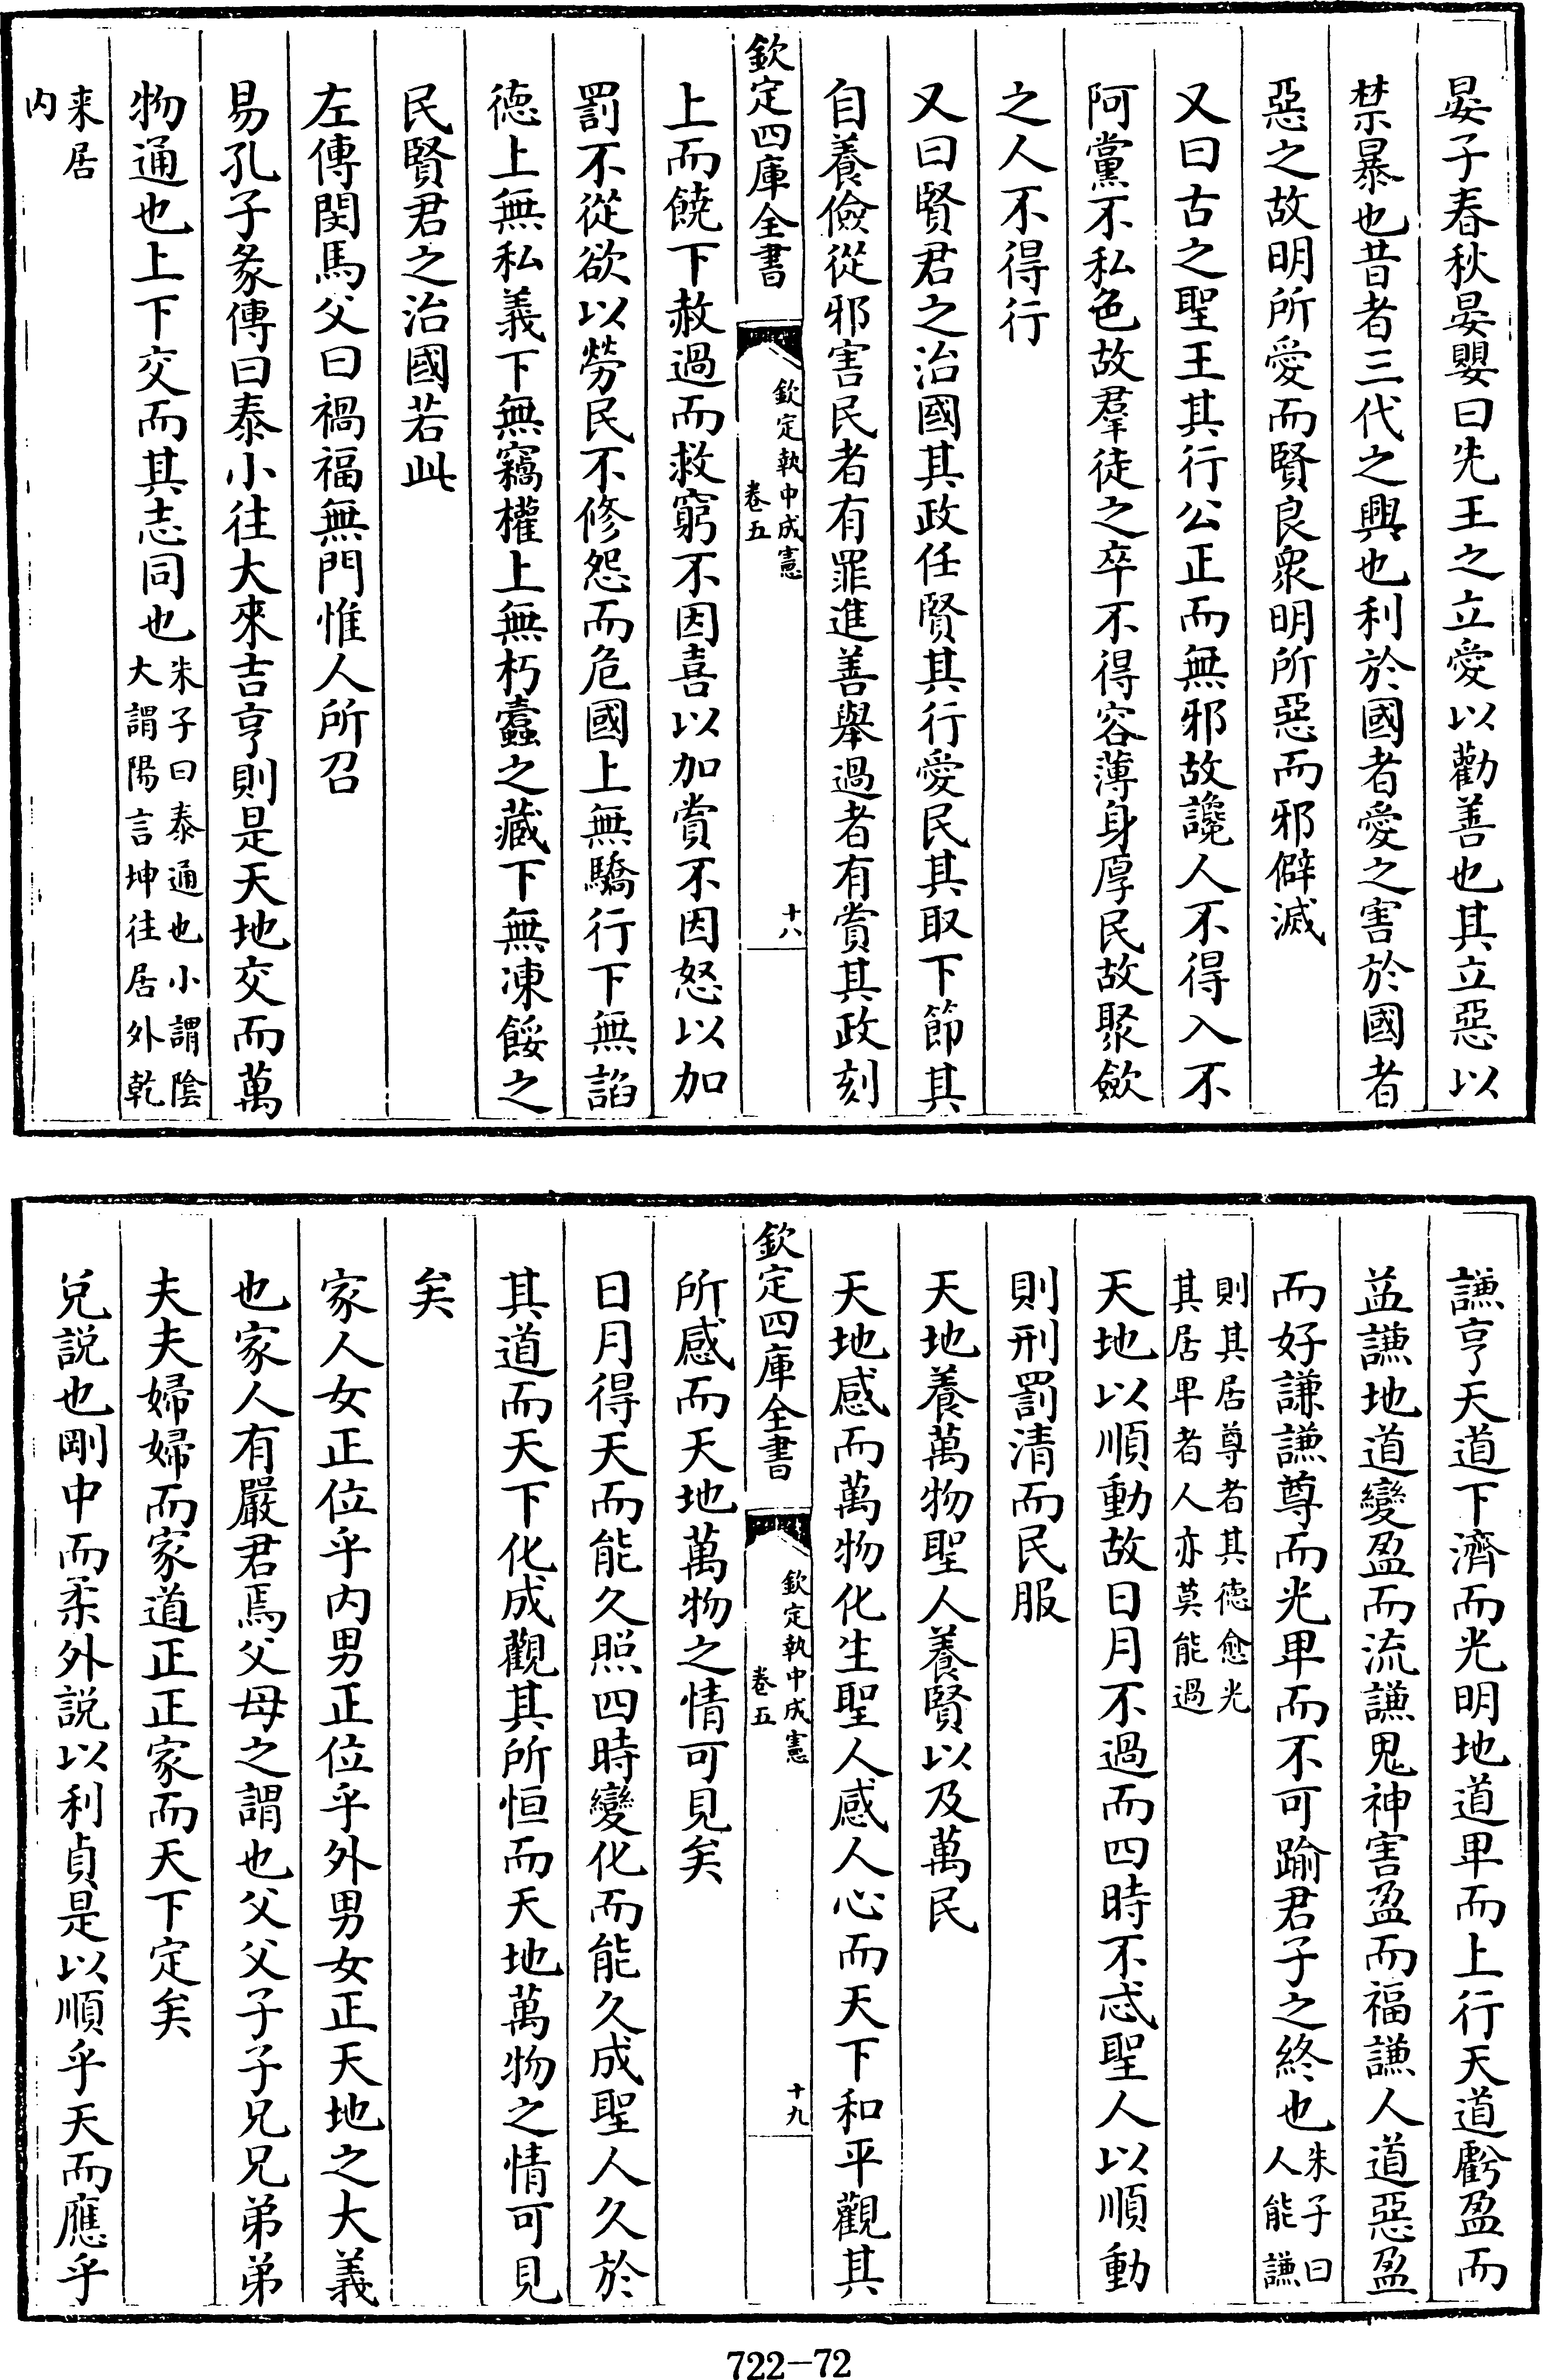 晏子春秋晏嬰曰先王之立愛以勸善也其立惡以
禁暴也昔者三代之興也利於國者愛之害於國者
惡之故明所愛而賢良衆明所惡而邪僻滅
又曰古之聖王其行公正而無邪故讒人不得入不
阿黨不私色故羣徒之卒不得容薄身厚民故聚斂
之人不得行
又曰賢君之治國其政任賢其行愛民其取下節其
自養儉從邪害民者有罪進善舉過者有賞其政刻
欽定四庫全書
欽定執中成憲
卷五
十八
上而饒下赦過而救窮不因喜以加賞不因怒以加
罰不從欲以勞民不修怨而危國上無驕行下無諂
德上無私義下無竊權上無朽蠹之藏下無凍餒之
民賢君之治國若此
左傳閔馬父曰禍福無門惟人所召
易孔子彖傳曰泰小往大來吉亨則是天地交而萬
物通也上下交而其志同也朱子曰泰通也小謂陰
大謂陽言坤往居外乾
来居
内
謙亨天道下濟而光明地道卑而上行天道虧盈而
益謙地道變盈而流謙鬼神害盈而福謙人道惡盈
而好謙謙尊而光卑而不可踰君子之終也朱子曰
人能謙
則其居尊者其徳愈光
其居卑者人亦莫能過
天地以順動故日月不過而四時不忒聖人以順動
則刑罰清而民服
天地養萬物聖人養賢以及萬民
天地感而萬物化生聖人感人心而天下和平觀其
欽定四庫全書
欽定執中成憲
卷五
十九
所感而天地萬物之情可見矣
日月得天而能久照四時變化而能久成聖人久於
其道而天下化成觀其所恒而天地萬物之情可見
矣
家人女正位乎内男正位乎外男女正天地之大義
也家人有嚴君焉父母之謂也父父子子兄兄弟弟
夫夫婦婦而家道正正家而天下定矣
兌説也剛中而柔外説以利貞是以順乎天而應乎
722-72